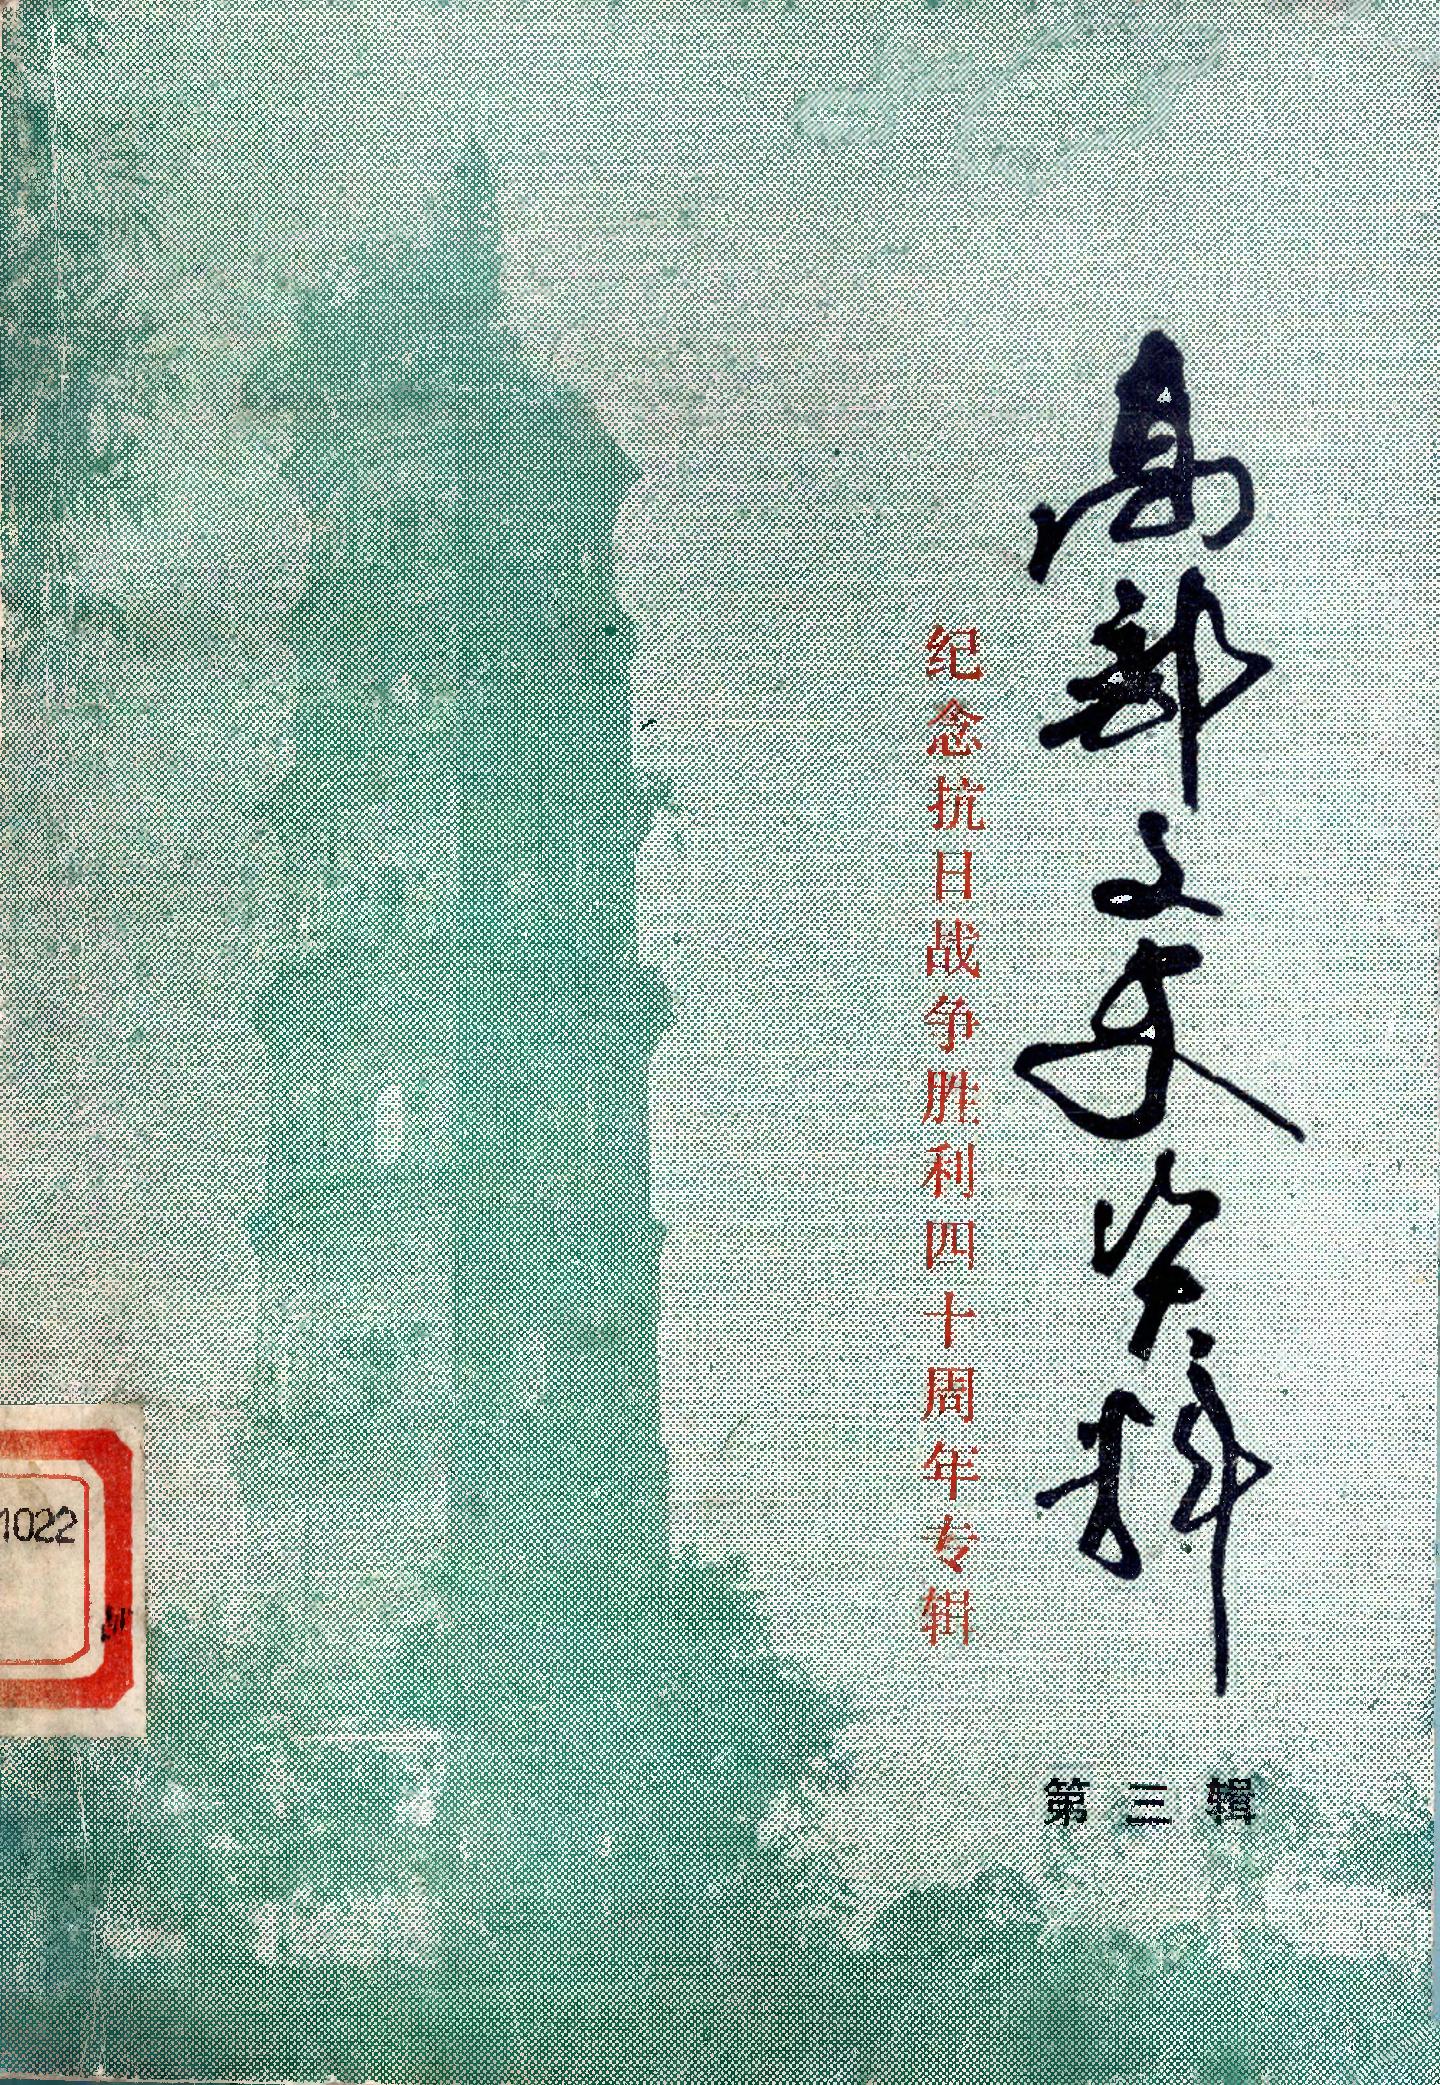 高邮文史资料
纪念抗日战争胜利四十周年专辑
第三辑
1022